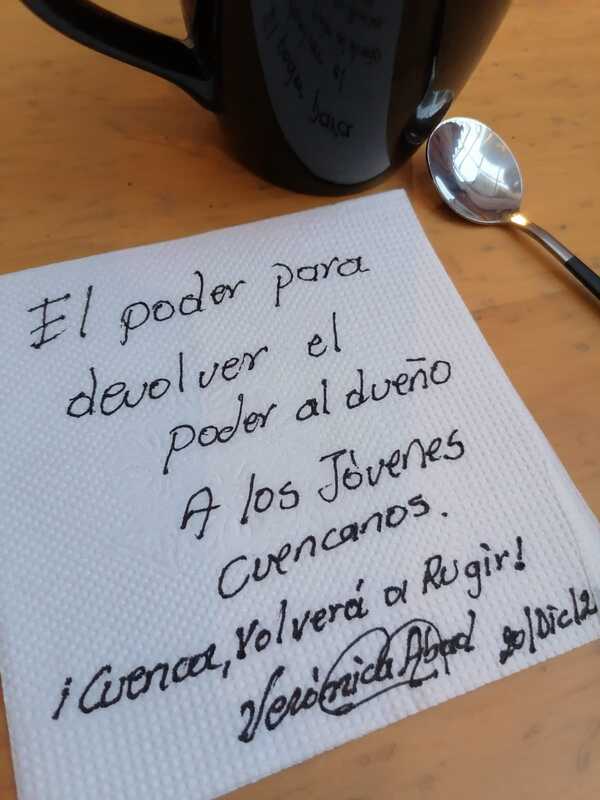 El poder para
devolver el
poder al dueño
A los Jóvenes
Cuencanos.
¡Cuenca, Volverá a Rugir!
Verónica Abad 20/Dic/2